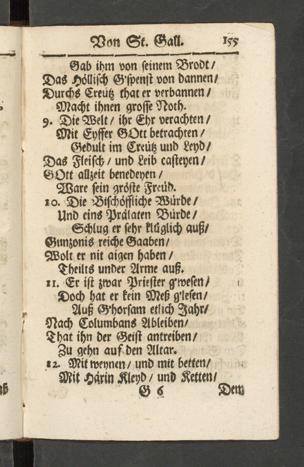 Von St. Gall. 155
Gab ihm von seinem Brodt/
Das Höllisch G'spenst von dannen/
Durchs Creütz that er verbannen/
Macht ihnen grosse Noth.
9. Die Welt/ ihr Ehr verachten/
Mit Eyffer GOtt betrachten/
Gedult im Creütz und Leyd/
Das Fleisch/ und Leib casteyen/
GOtt allzeit benedeyen/
Ware sein gröste Freüd.
10. Die Bischöffliche Würde/
Und eins Prälaten Bürde/
Schlug er sehr klüglich auß/
Gunzonis reiche Gaaben/
Wolt er nit aigen haben/
Theilts under Arme auß.
11. Er ist zwar Priester g'wesen/
Doch hat er kein Meß g'lesen/
Auß G'horsam etlich Jahr/
Nach Columbans Ableiben/
That ihn der Geist antreiben/
Zu gehn auf den Altar.
12. Mit weynen/ und mit betten/
Mit Härin Kleyd/ und Ketten/
G 6 Dem